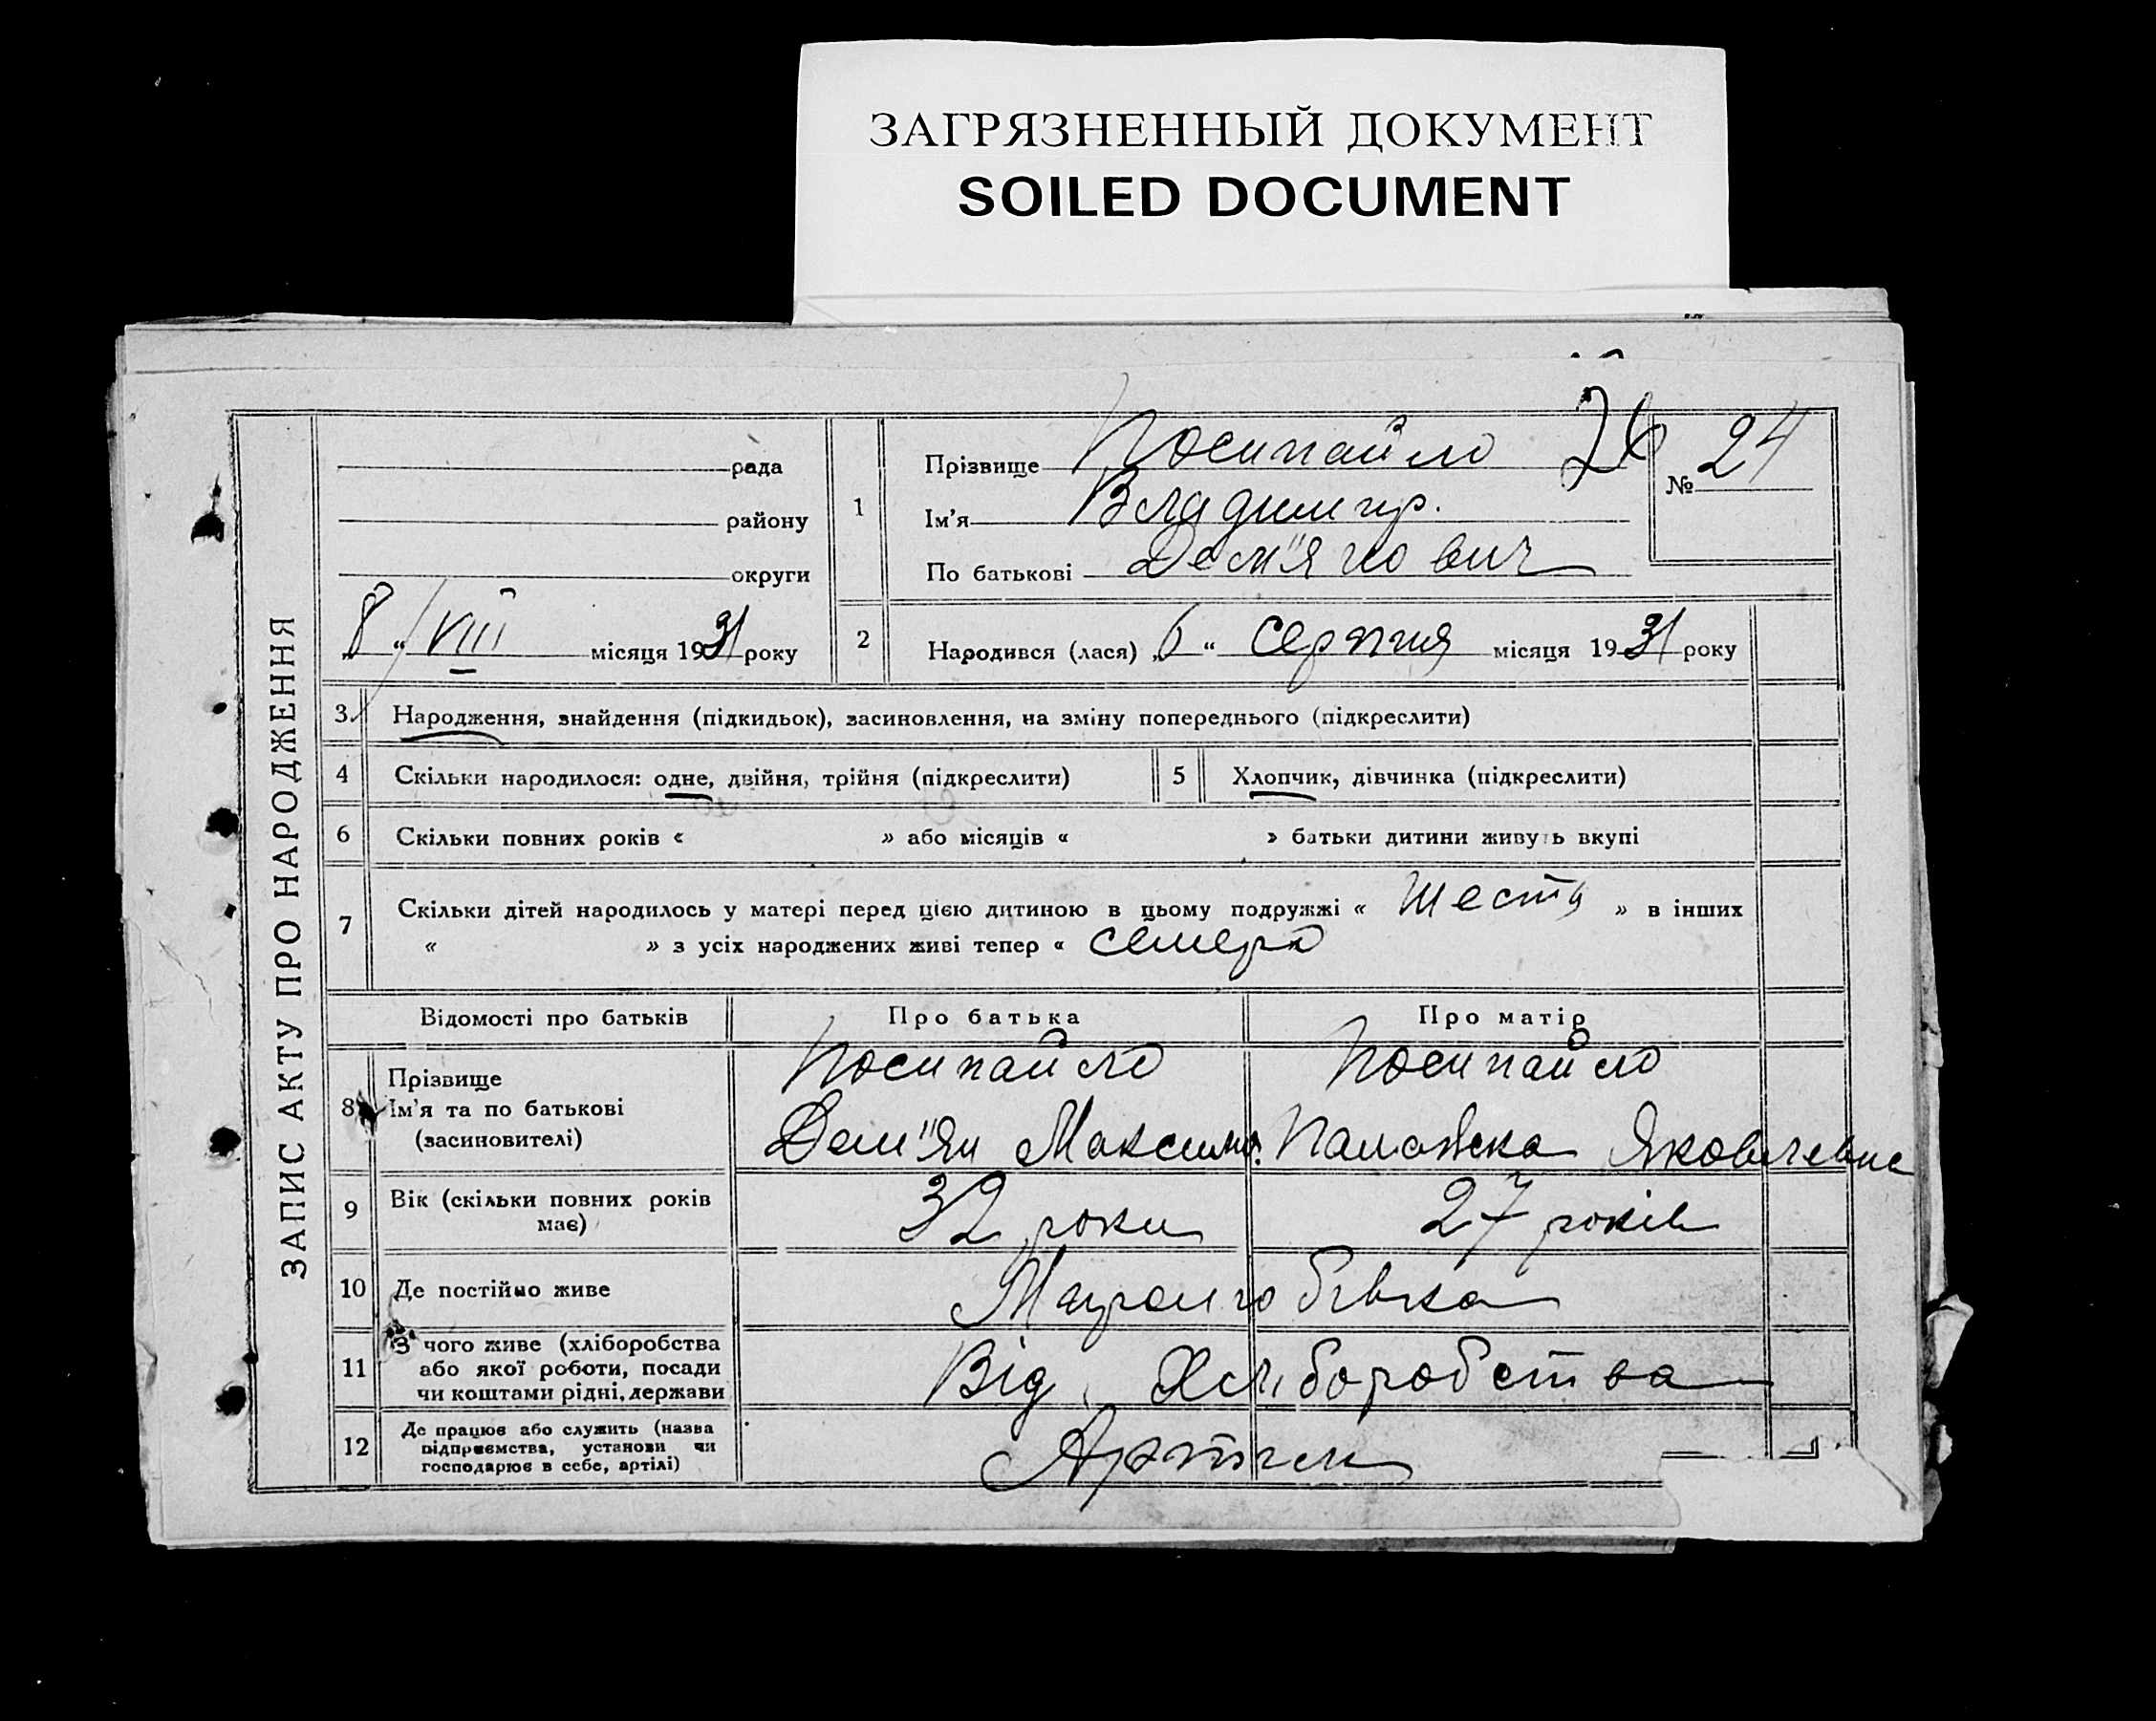 ЗАГРЯЗНЕННЫЙ ДОКУМЕНТ
SOILED DOCUMENT
ЗАПИС АКТУ ПРО НАРОДЖЕННЯ
рада
району
округи
„8“ VIII місяця 1931 року
26
№ 24
1 Прізвище Посипайло
Ім'я Владимир.
По батькові Дем"янович
2 Народився (лася) „6“ Серпня місяця 1931 року
3 Народження, знайдення (підкидьок), засиновлення, на зміну попереднього (підкреслити)
4 Скільки народилося: одне, двійня, трійня (підкреслити) 5 Хлопчик, дівчинка (підкреслити)
6 Скільки повних років « » або місяців « » батьки дитини живуть вкупі
7 Скільки дітей народилось у матері перед цією дитиною в цьому подружжі « » в інших
« » з усіх народжених живі тепер « семеро
Відомості про батьків Про батька Про матір
8 Прізвище Посипайло Посипайло
Ім'я та по батькові
(засиновителі) Дем"ян Максимо.
9 Вік (скільки повних років має) 32 роки 27 років
10 Де постійно живе
11 З чого живе (хліборобства
або якої роботи, посади
чи коштами рідні, держави Від Хліборобства
12 Де працює або служить (назва
підприємства, установи чи
господарює в себе, артілі)